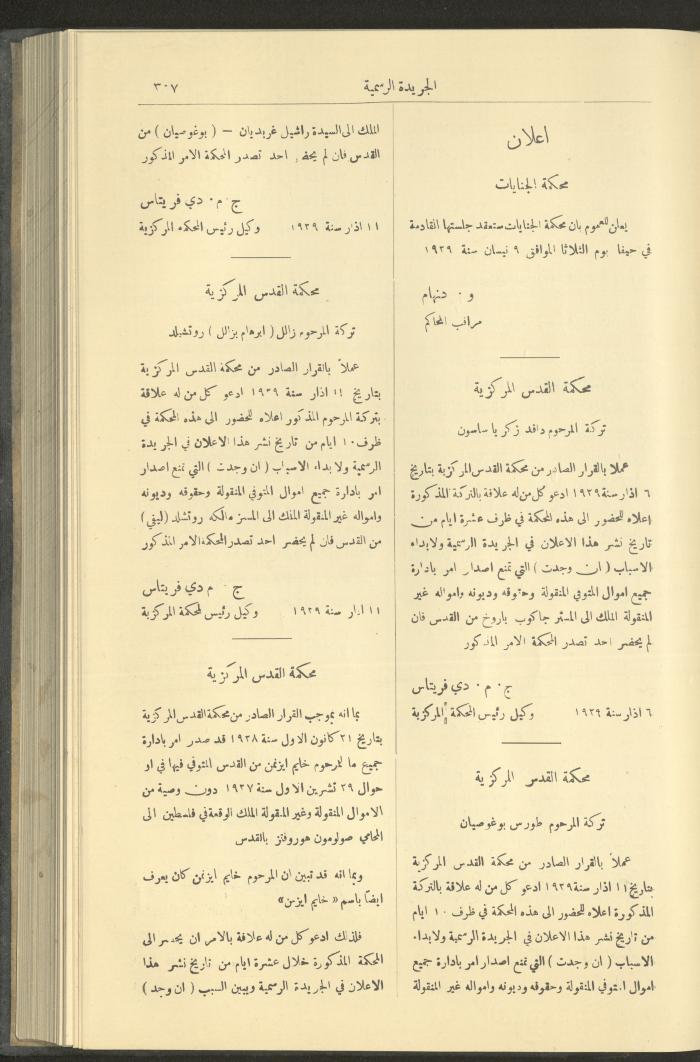 الجريدة الرسمية
٣٠٧
اعلان
محكمة الجنايات
يعلن للعموم بان محكمة الجنايات ستعقد جلستها القادمة
في حيفا يوم الثلاثا الموافق ٩ نيسان سنة ١٩٢٩
و ٠ دنهام
مراقب المحاكم
محكمة القدس المركزية
تركة المرحوم دافد زكريا ساسون
عملا بالقرار الصادر من محكمة القدس المركزية بتاريخ
٦ اذار سنة ١٩٢٩ ادعو كل من له علاقة بالتركة المذكورة
اعلاه للحضور الى هذه المحكمة في ظرف عشرة ايام من
تاريخ نشر هذا الاعلان في الجريدة الرسمية ولابداء
الاسباب ( ان وجدت ) التي تمنع اصدار امر بادارة
جميع اموال المتوفي المنقولة وحقوقه وديونه وامواله غير
المنقولة الملك الى المستر جاكوب باروخ من القدس فان
لم يحضر احد تصدر المحكمة الامر المذكور
ج ٠ م ٠ دي فريتاس
٦ اذار سنة ١٩٢٩ وكيل رئيس المحكمة المركزية
محكمة القدس المركزية
تركة المرحوم طورس بوغوصيان
عملاً بالقرار الصادر من محكمة القدس المركزية
بتاريخ ١١ اذار سنة ١٩٢٩ ادعو كل من له علاقة بالتركة
المذكورة اعلاه للحضور الى هذه المحكمة في ظرف ١٠ ايام
من تاريخ نشر هذا الاعلان في الجريدة الرسمية ولابداء
الاسباب ( ان وجدت ) التي تمنع اصدار امر بادارة جميع
اموال المتوفي المنقولة وحقوقه وديونه وامواله غير المنقولة
الملك الى السيدة راشيل غربديان – ( بوغوصيان ) من
القدس فان لم يحضر احد تصدر المحكمة الامر المذكور
ج ٠ م ٠ دي فريتاس
١١ اذار سنة ١٩٢٩ وكيل رئيس المحكمة المركزية
محكمة القدس المركزية
تركة المرحوم زالل ( ابرهام بزالل ) روتشيلد
عملاً بالقرار الصادر من محكمة القدس المركزية
بتاريخ ١١ اذار سنة ١٩٢٩ ادعو كل من له علاقة
بتركة المرحوم المذكور اعلاه للحضور الى هذه المحكمة في
ظرف ١٠ ايام من تاريخ نشر هذا الاعلان في الجريدة
الرسمية ولابداء الاسباب ( ان وجدت ) التي تمنع اصدار
امر بادارة جميع اموال المتوفي المنقولة وحقوقه وديونه
وامواله غير المنقولة الملك الى المسز مالكه روتشلد (ليفي)
من القدس فان لم يحضر احد تصدر المحكمة الامر المذكور
ج ٠ م دي فريتاس
١١ اذار سنة ١٩٢٩ وكيل رئيس المحكمة المركزية
محكمة القدس المركزية
بما انه بموجب القرار الصادر من محكمة القدس المركزية
بتاريخ ٢١ كانون الاول سنة ١٩٢٨ قد صدر امر بادارة
جميع ما للمرحوم خايم ايزنمن من القدس المتوفي فيها في او
حوالى ٢٩ تشرين الاول سنة ١٩٢٧ دون وصية من
الاموال المنقولة وغير المنقولة الملك الوقعة في فلسطين الى
المحامي صولومون هوروفتز بالقدس
وبما انه قد تبين ان المرحوم خايم ايزنمن كان يعرف
ايضاً باسم « خايم ايزمن»
فلذلك ادعو كل من له علاقة بالامر ان يحضر الى
المحكمة المذكورة خلال عشرة ايام من تاريخ نشر هذا
الاعلان في الجريدة الرسمية ويبين السبب ( ان وجد )